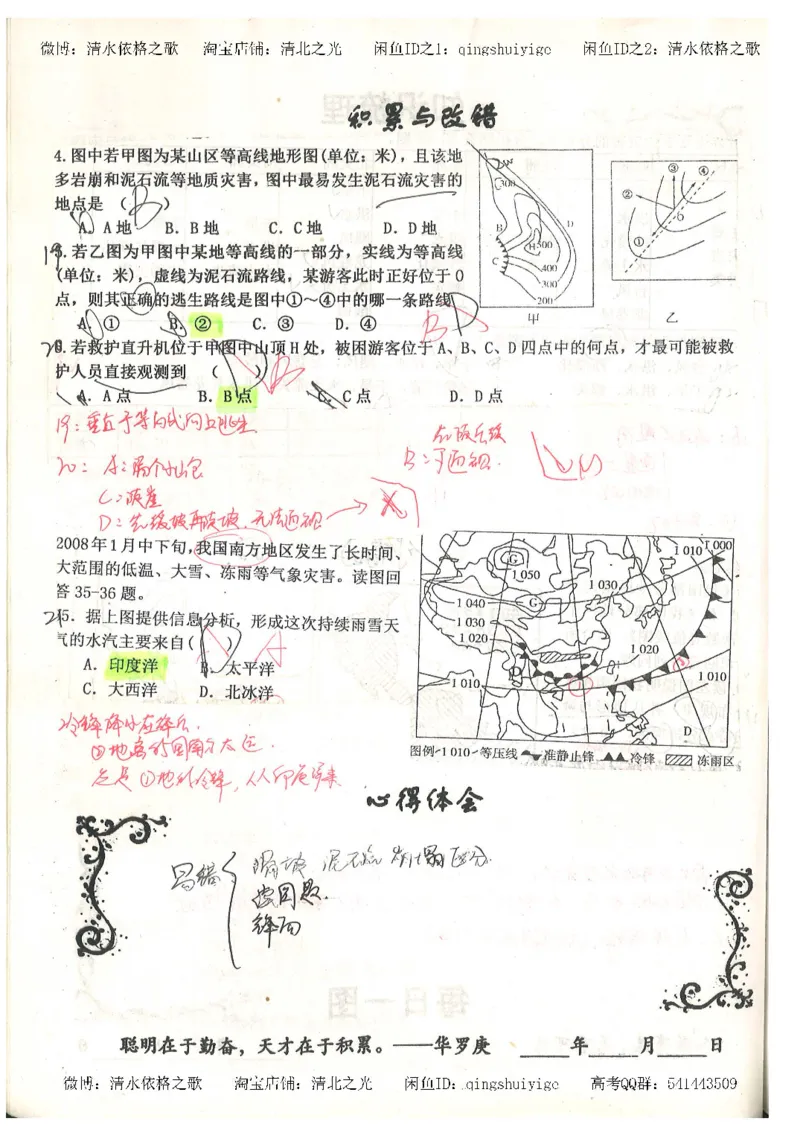 微博：清水依格之歌 淘宝店铺：清北之光 闲鱼ID之1：qingshuiyige 闲鱼ID之2：清水依格之歌
积累与改错
4.图中若甲图为某山区等高线地形图(单位：米)，且该地
多岩崩和泥石流等地质灾害，图中最易发生泥石流灾害的
地点是 （ B ）
A.A地 B.B地 C.C地 D.D地
19.若乙图为甲图中某地等高线的一部分，实线为等高线
(单位：米)，虚线为泥石流路线，某游客此时正好位于O
点，则其正确的逃生路线是图中①～④中的哪一条路线
A.① B.② C.③ D.④
20.若救护直升机位于甲图中山顶H处，被困游客位于A、B、C、D四点中的何点，才最可能被救
护人员直接观测到 （ ）
A.A点 B.B点 C.C点 D.D点
300
B
C
H 500
D
400
300
200
甲
① ② ③ ④
乙
19：垂直于等高线向上逃生
20：A：隔个小山包
C：陡崖
D：先缓坡再陡坡，无法
先陡后缓
B：
2008年1月中下旬，我国南方地区发生了长时间、
大范围的低温、大雪、冻雨等气象灾害。读图回
答35-36题。
21 5．据上图提供信息分析，形成这次持续雨雪天
气的水汽主要来自( )
A．印度洋 B．太平洋
C．大西洋 D．北冰洋
冷锋降水在锋后．
②地离我国南方太远．
①地
G
1 050
1 040
G
1 030
1 030
1 020
1 020
1 010
1 010
1 010
1 000
D
D
图例 1 010 等压线 准静止锋 冷锋 冻雨区
心得体会
易错
滑坡 泥石流 崩塌区分
读图题．
锋面
聪明在于勤奋，天才在于积累。——华罗庚 ____年____月____日
微博：清水依格之歌 淘宝店铺：清北之光 闲鱼ID：qingshuiyige 高考QQ群：541443509